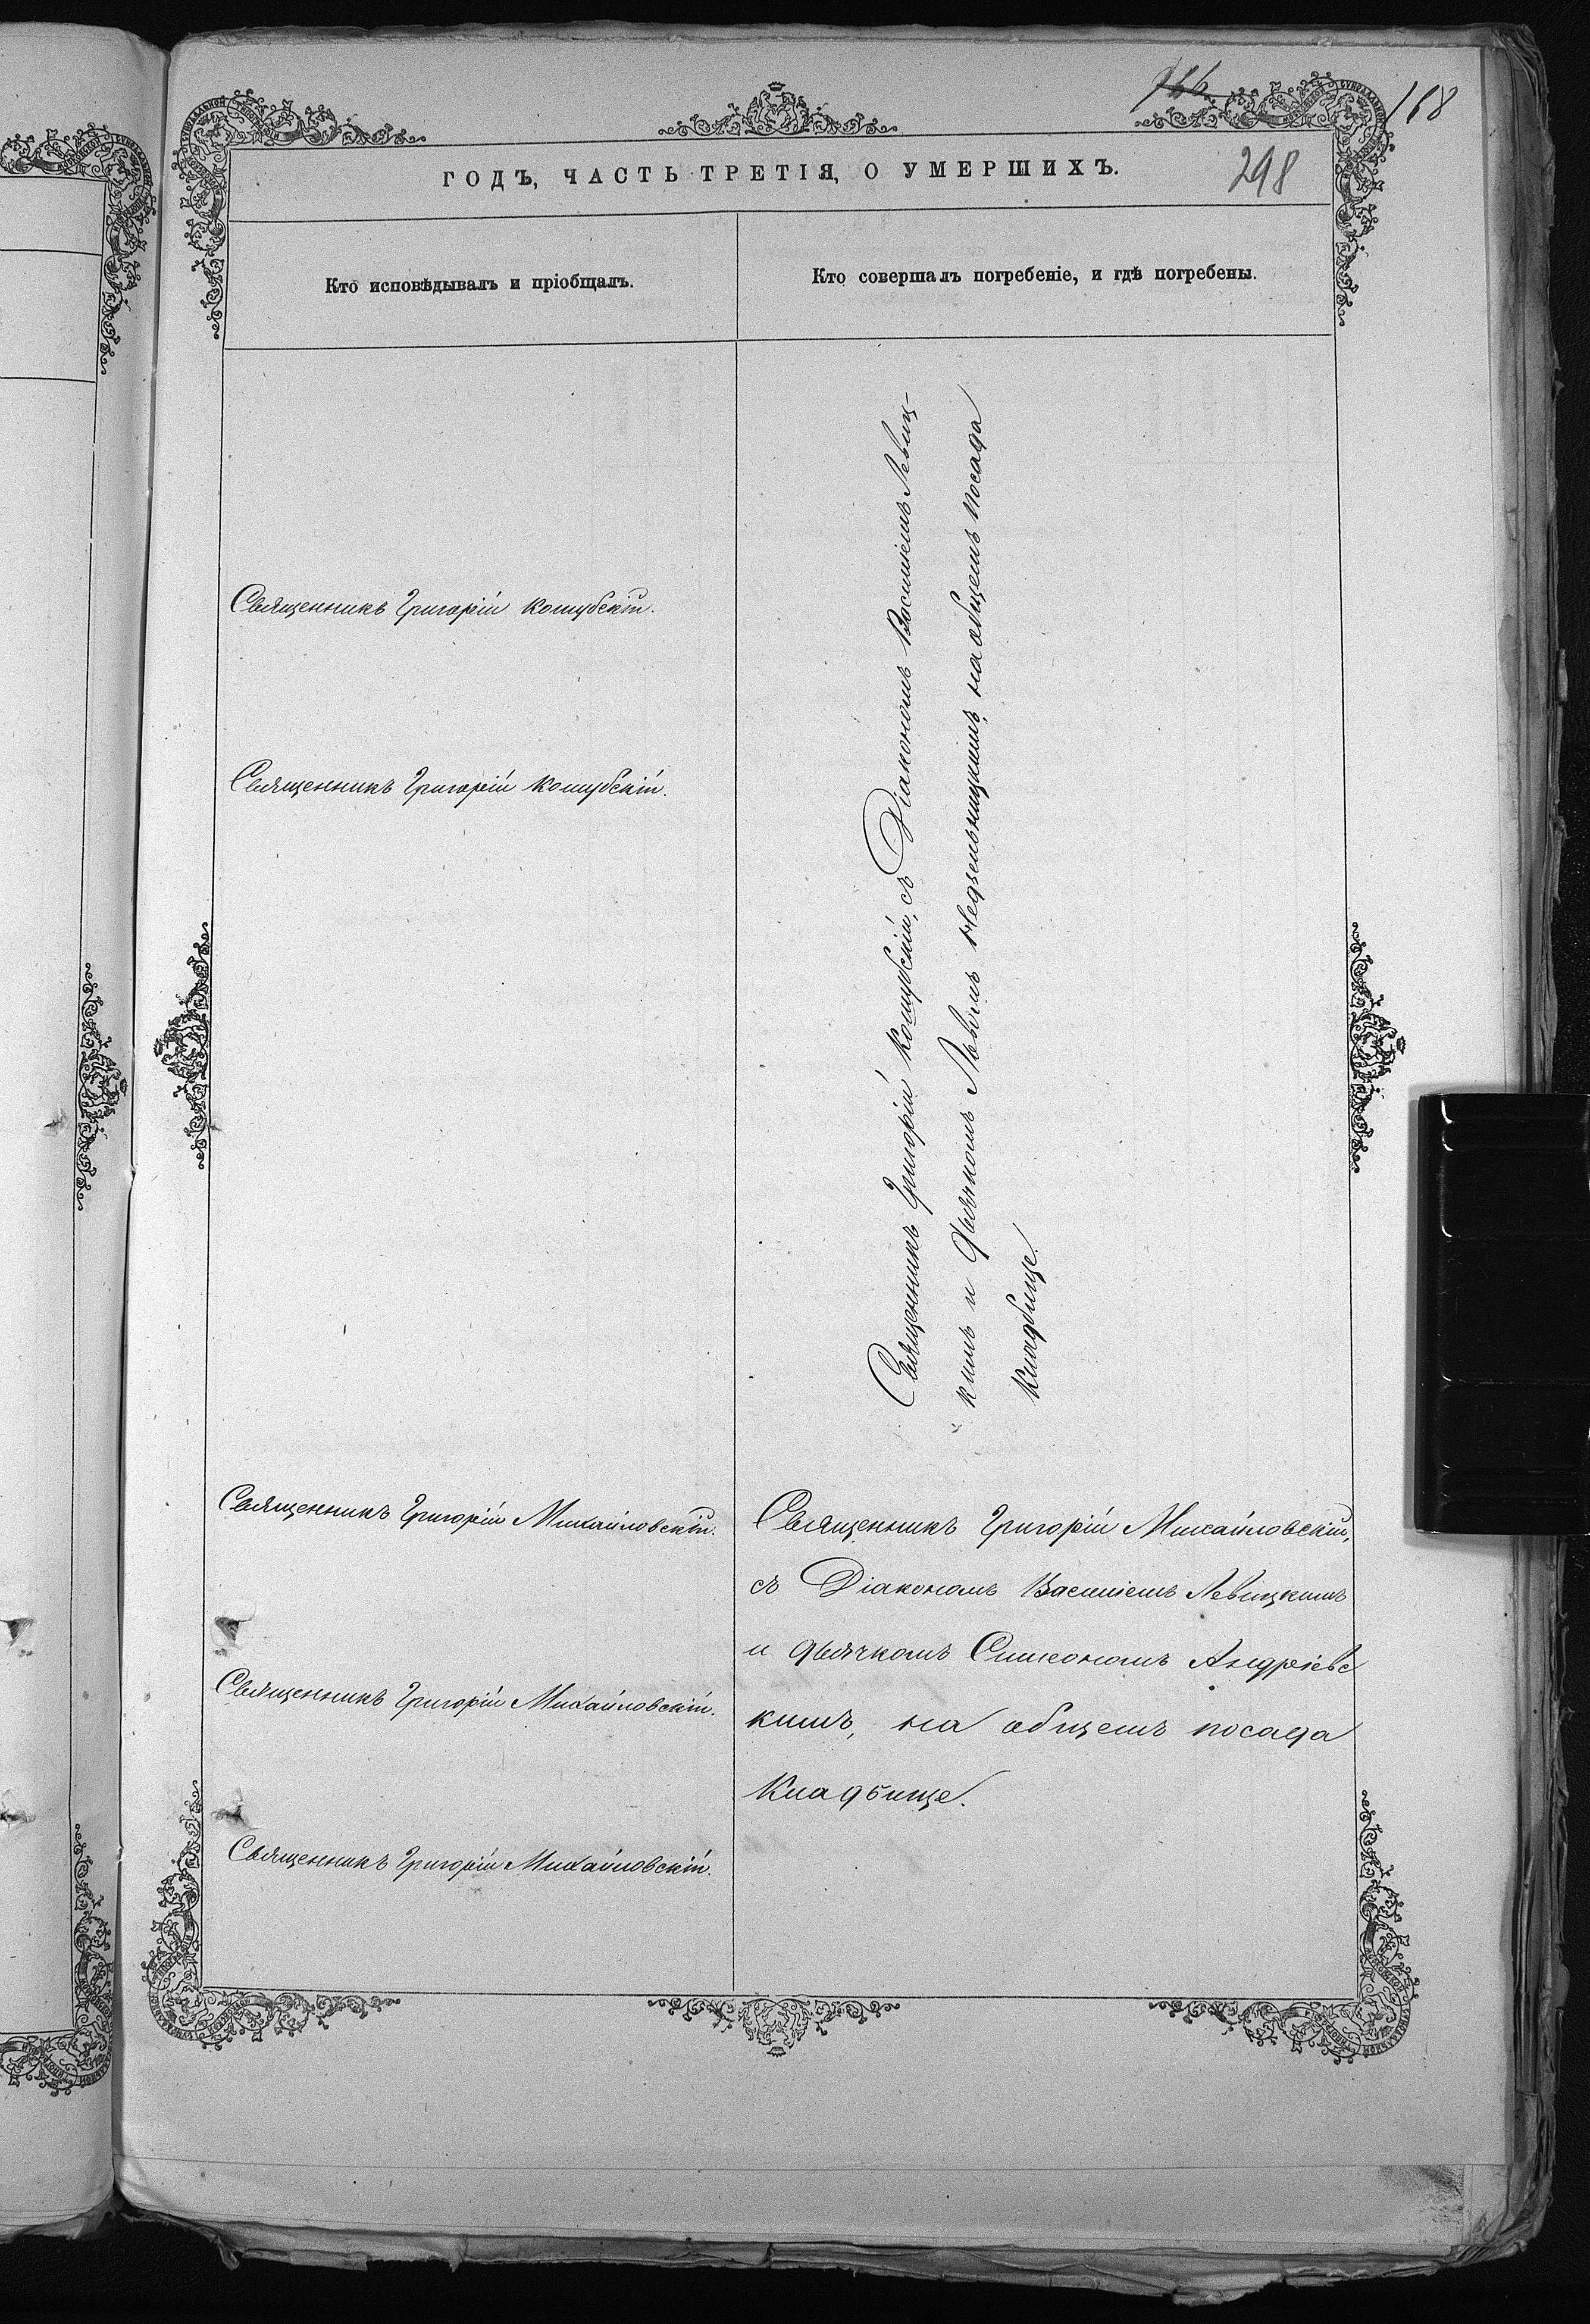 166
168
ГОДЪ, ЧАСТЬ ТРЕТІЯ, О УМЕРШИХЪ.
298
Кто исповѣдывалъ и пріобщалъ.
Кто совершалъ погребеніе, и гдѣ погребены.
Священникъ Григорій Кошубскій.
Священникъ Григорій Кошубскій.
Священникъ Григорій Кошубскій, съ Діакономъ Василіемъ Левиц-
кимъ и дьячкомъ Львомъ Недзельницкимъ, на общемъ посада
кладбище.
Священникъ Григорій Михайловскій.
Священникъ Григорій Михайловскій.
Священникъ Григорій Михайловскій.
Священникъ Григорій Михайловскій,
съ Діакономъ Василіемъ Левицкимъ
и дьячкомъ Симеономъ Андріевс
кимъ, на общемъ посада
кладбище.